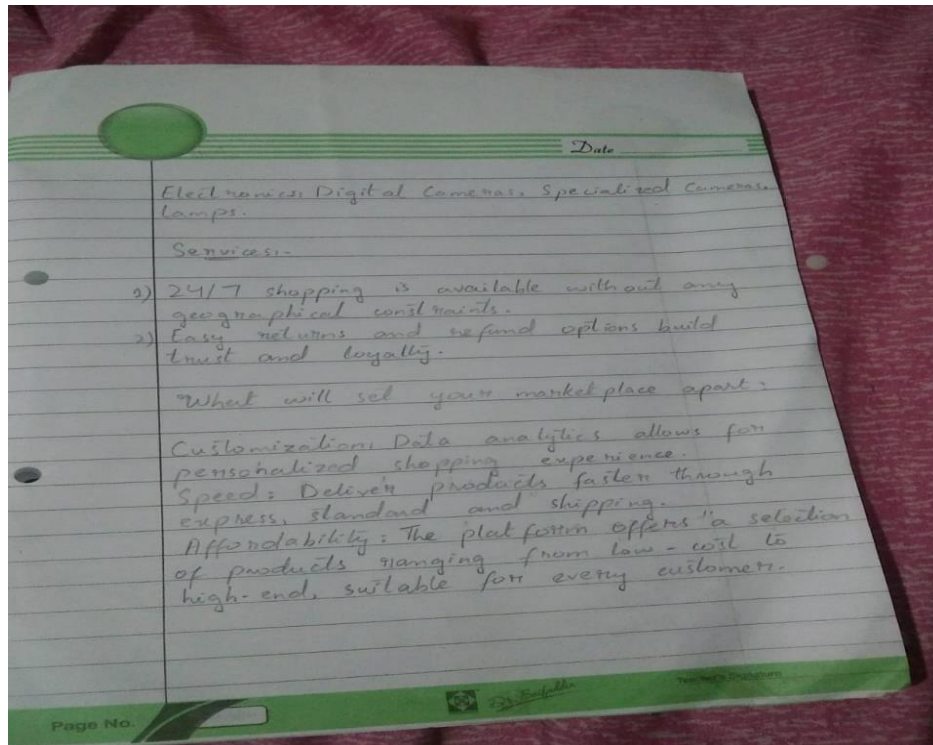 Date
Electronics, Digital Cameras, Specialized Cameras,
Lamps.
Services:-
1) 24/7 shopping is available without any
geographical constraints.
2) Easy returns and refund options build
trust and loyalty.
What will set your market place apart:
Customization: Data analytics allows for
personalized shopping experience.
Speed: Deliver products faster through
express, standard and shipping.
Affordability: The platform offers a selection
of products ranging from low-cost to
high-end, suitable for every customer.
Teacher's Signature
Page No.